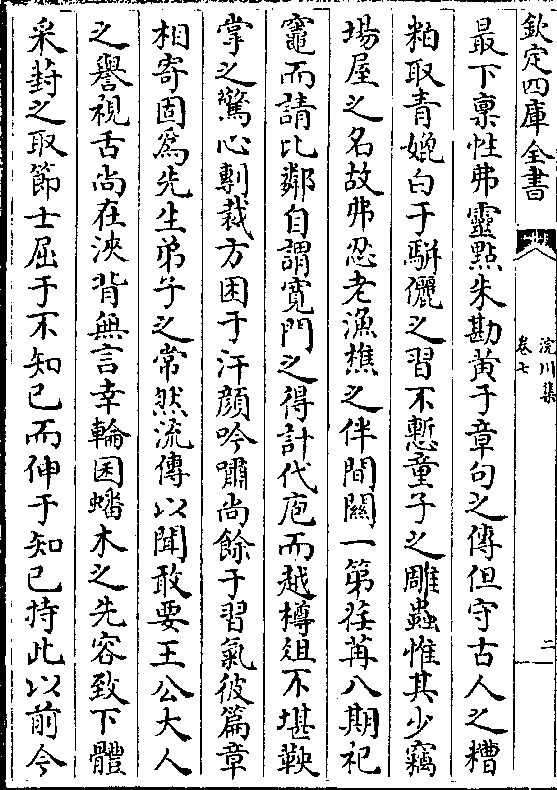 欽定四庫全書
浣川集
卷七
二
最下禀性弗靈點朱勘黄于章句之傳但守古人之糟
粕取青媲白于駢儷之習不慙童子之雕蟲惟其少竊
場屋之名故弗忍老漁樵之伴間關一第荏苒八期祀
竈而請比鄰自謂寛門之得計代庖而越樽俎不堪鞅
掌之驚心剸裁方困于汗顔吟嘯尚餘于習氣彼篇章
相寄固為先生弟子之常然流傳以聞敢要王公大人
之譽視舌尚在浹背無言幸輪囷蟠木之先容致下體
采葑之取節士屈于不知己而伸于知己持此以前今